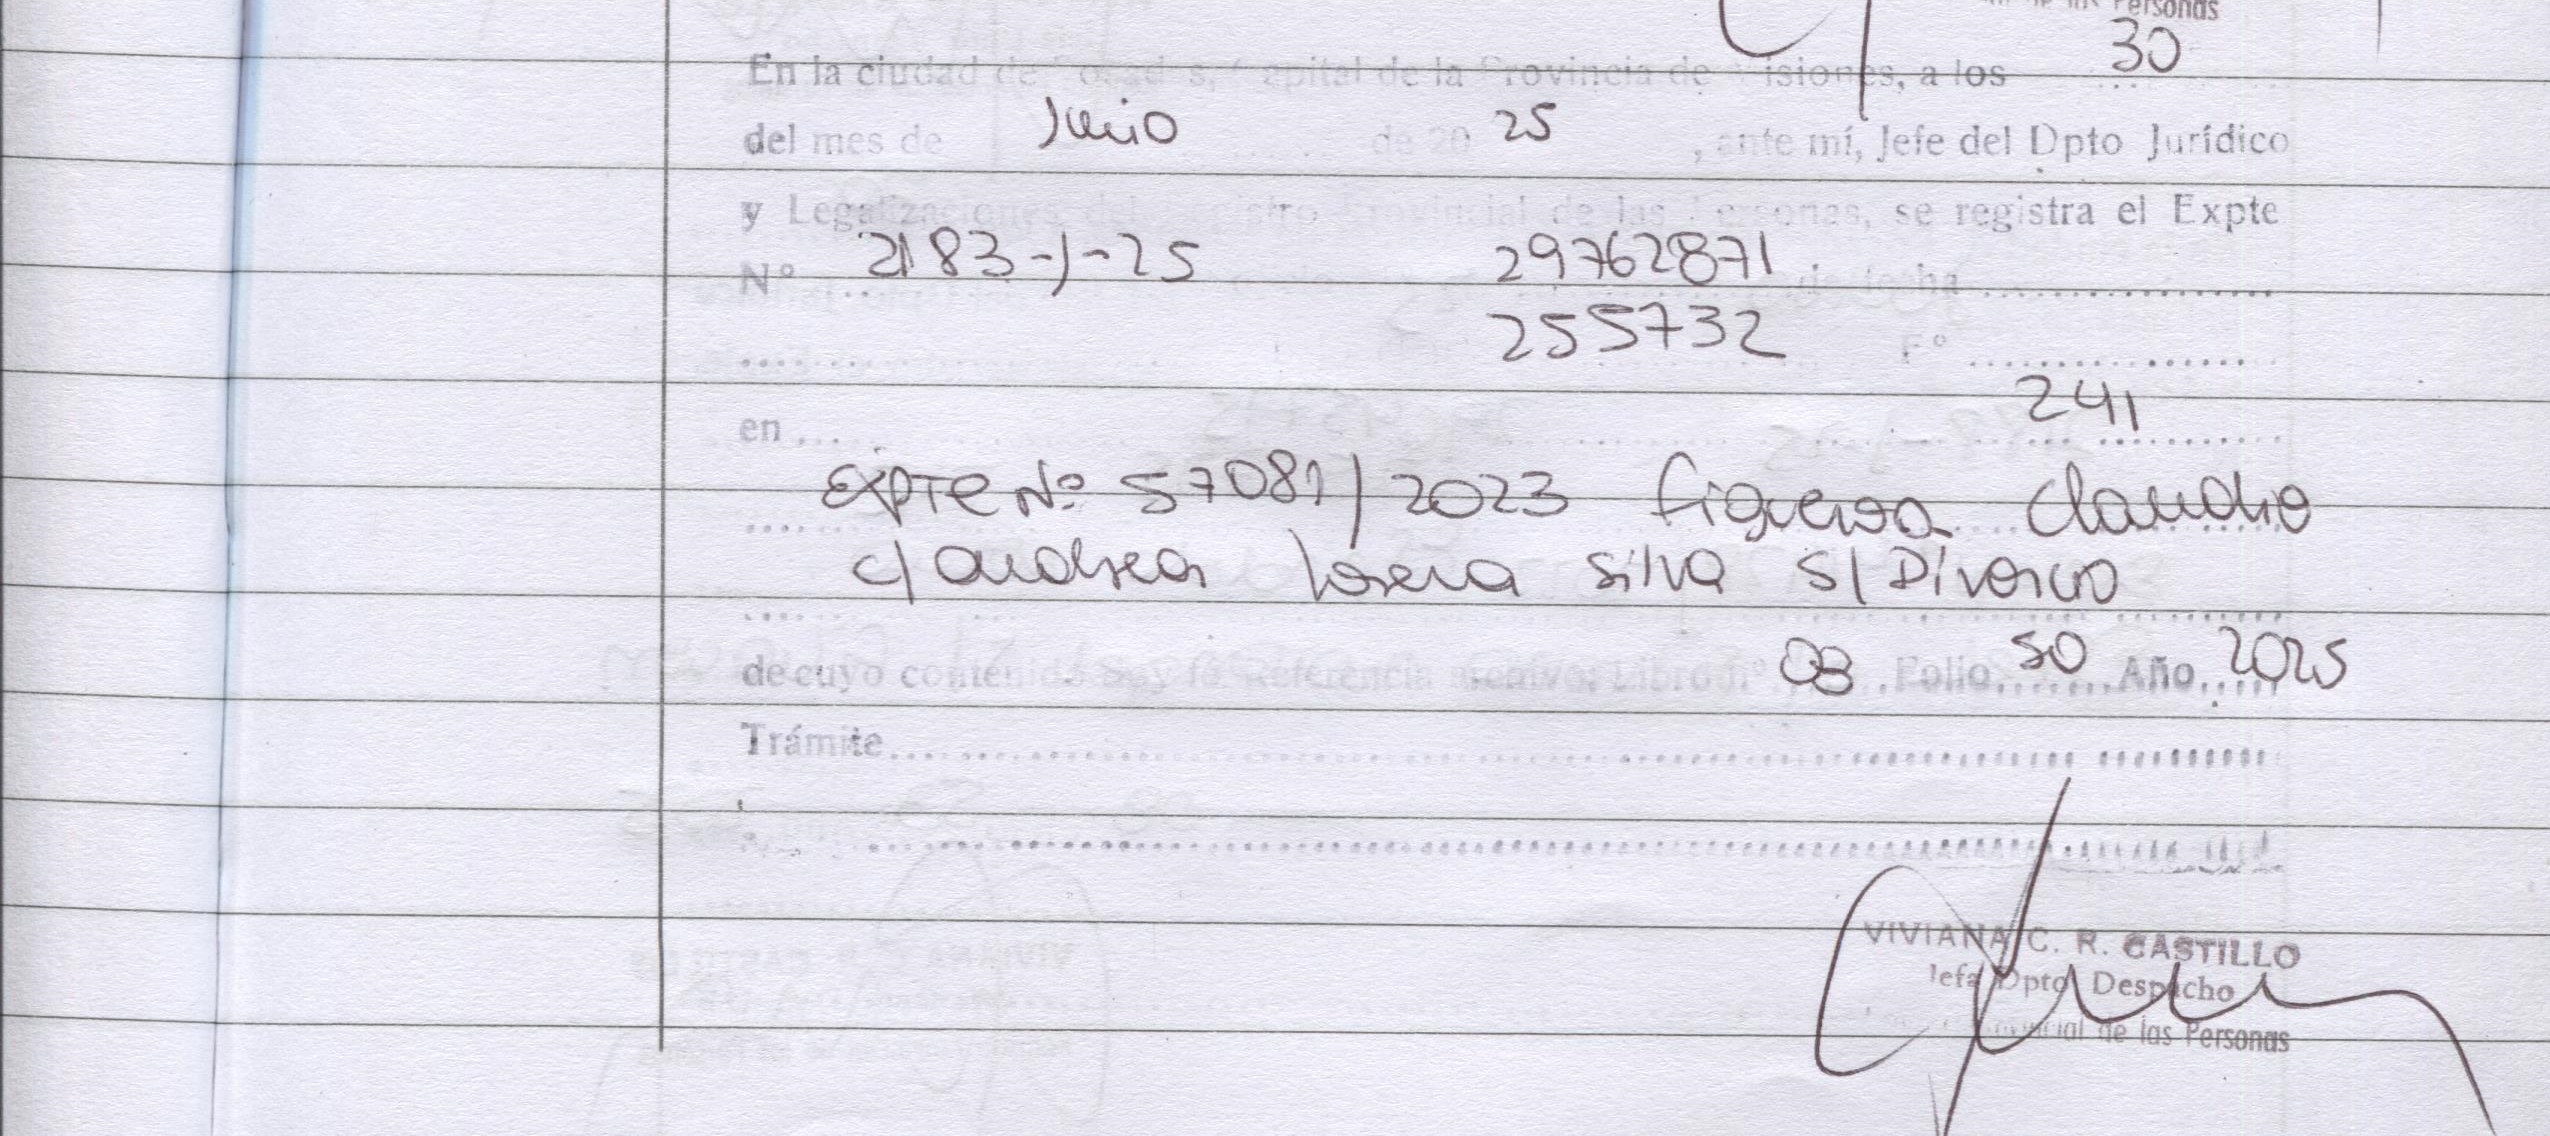 Personas
En la ciudad de Posadas, Capital de la Provincia de Misiones, a los 30
del mes de Junio de 20 25, ante mí, Jefe del Dpto Jurídico
y Legalizaciones del Registro Provincial de las Personas, se registra el Expte
Nº 2183-J-25 29762871 de fecha
255732 Fº
en 241
Expte Nº 57081/2023 Figueroa Claudio
c/ Andrea Lorena Silva S/ Divorcio
de cuyo contenido doy fe. Referencia archivo: Libro nº 08 Folio 50 Año 2025
Trámite
VIVIANA C. R. CASTILLO
Jefa Dpto Despacho
Provincial de las Personas